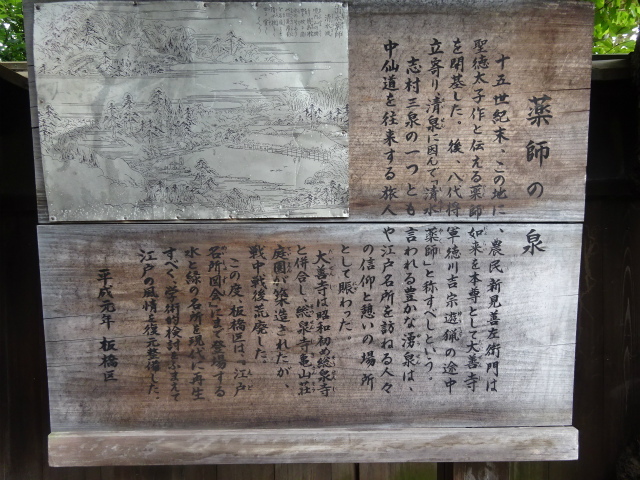 薬師の泉
十五世紀末、この地に、農民新見善左衛門は
聖徳太子作と伝える薬師如来を本尊として大善寺
を開基した。後、八代将軍徳川吉宗遊猟の途中
立寄り、清泉に因んで「清水薬師」と称すべしという。
志村三泉の一つとも言われる豊かな湧泉は、
中仙道を往来する旅人や江戸名所を訪ねる人々
の信仰と憩いの場所
として賑わった。
大善寺は昭和初め総泉寺
と併合し、総泉寺亀山荘
庭園が築造されたが、
戦中戦後荒廃した。
この度、板橋区は、江戸
名所図会にまで登場する
水と緑の名所を現代に再生
すべく、学術的検討をふまえて
江戸の風情を復元整備した。
平成元年 板橋区